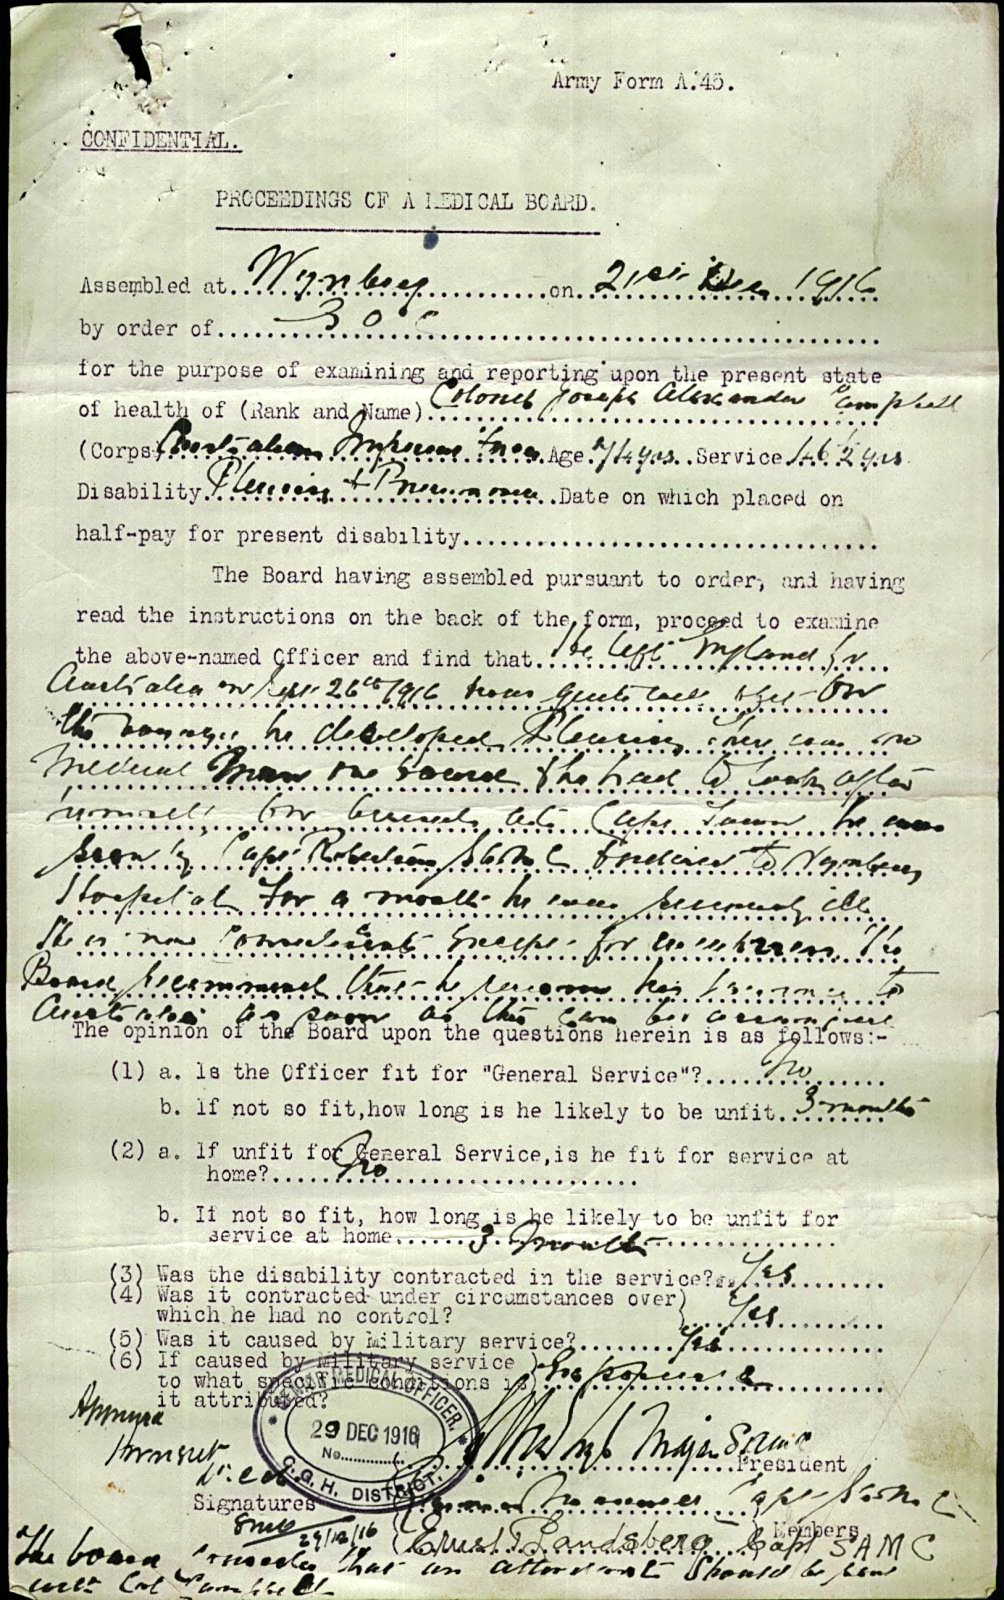 Army Form A.45.
CONFIDENTIAL.
PROCEEDINGS OF A MEDICAL BOARD.
Assembled at Wynberg on 21st Dec 1916
by order of
for the purpose of examining and reporting upon the present state
of health of (Rank and Name) Colonel Joseph Alexander Campbell
(Corps) Australian Imperial Force Age Service
Disability Pleurisy + Pneumonia Date on which placed on
half-pay for present disability
The Board having assembled pursuant to order, and having
read the instructions on the back of the form, proceed to examine
the above-named Officer and find that He left England for
Australia on Sept 26th 1916 On
the voyage he developed Pleurisy. There was no
Medical Man on board & he had to look after
himself. On arrival at Cape Town he was
seen by Capt Robertson & ordered to Wynberg
Hospital. For a month he was seriously ill.
He is now convalescent except for The
Board recommend that he resume his to
Australia as soon as this can be
The opinion of the Board upon the questions herein is as follows:-
(1) a. Is the Officer fit for "General Service"? No
b. If not so fit, how long is he likely to be unfit. 3 months
(2) a. If unfit for General Service, is he fit for service at
home? No
b. If not so fit, how long is he likely to be unfit for
service at home 3 months
(3) Was the disability contracted in the service? Yes
(4) Was it contracted under circumstances over)
which he had no control? ) Yes
(5) Was it caused by Military service? Yes
(6) If caused by military service )
to what specific conditions is) Exposure
it attributed?
SENIOR MEDICAL OFFICER.
29 DEC 1916
No.
C.G.H. DISTRICT.
Approved
Major SAMC
President
Signatures
Capt SAMC
29/12/16
Ernest Landsberg Capt SAMC
Members
The board consider that an attendant should be sent
with Col Campbell